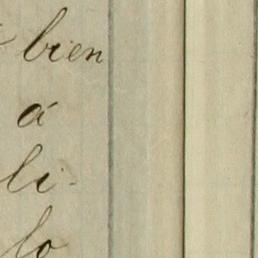 bien
á
li-
lo